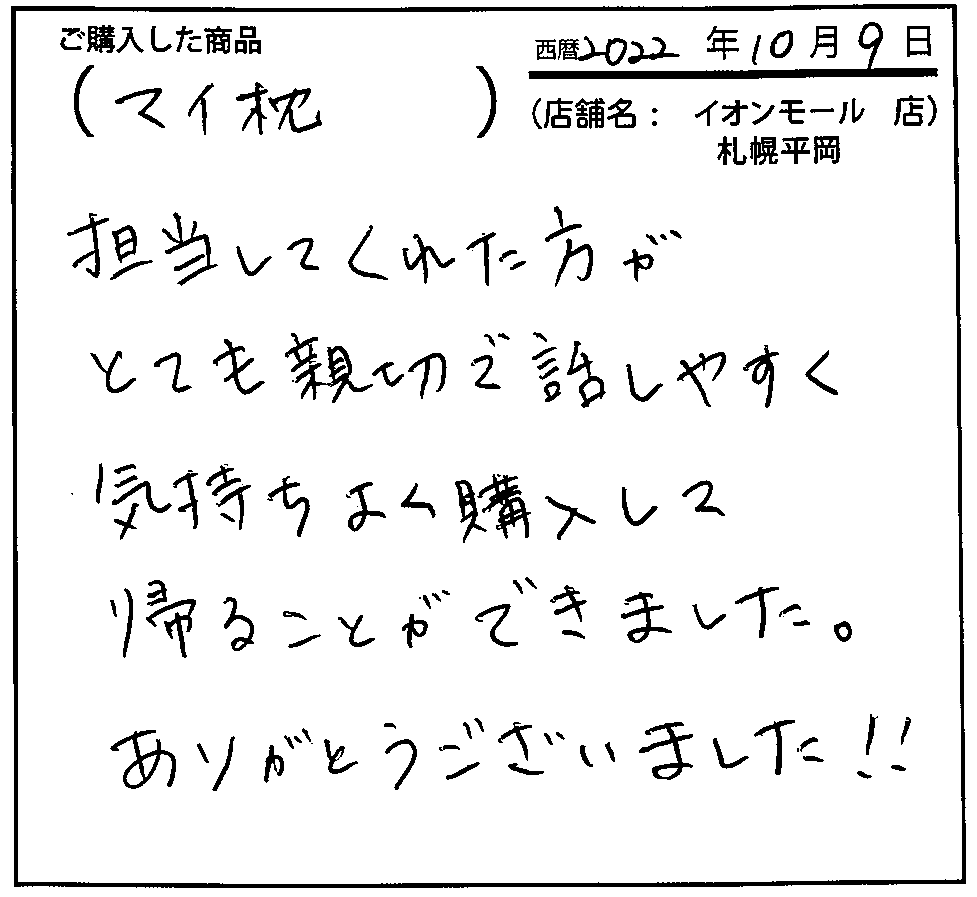 ご購入した商品
(マイ枕 )
西暦2022 年10月9日
(店舗名： イオンモール 店)
札幌平岡
担当してくれた方が
とても親切で話しやすく
気持ちよく購入して
帰ることができました。
ありがとうございました!!